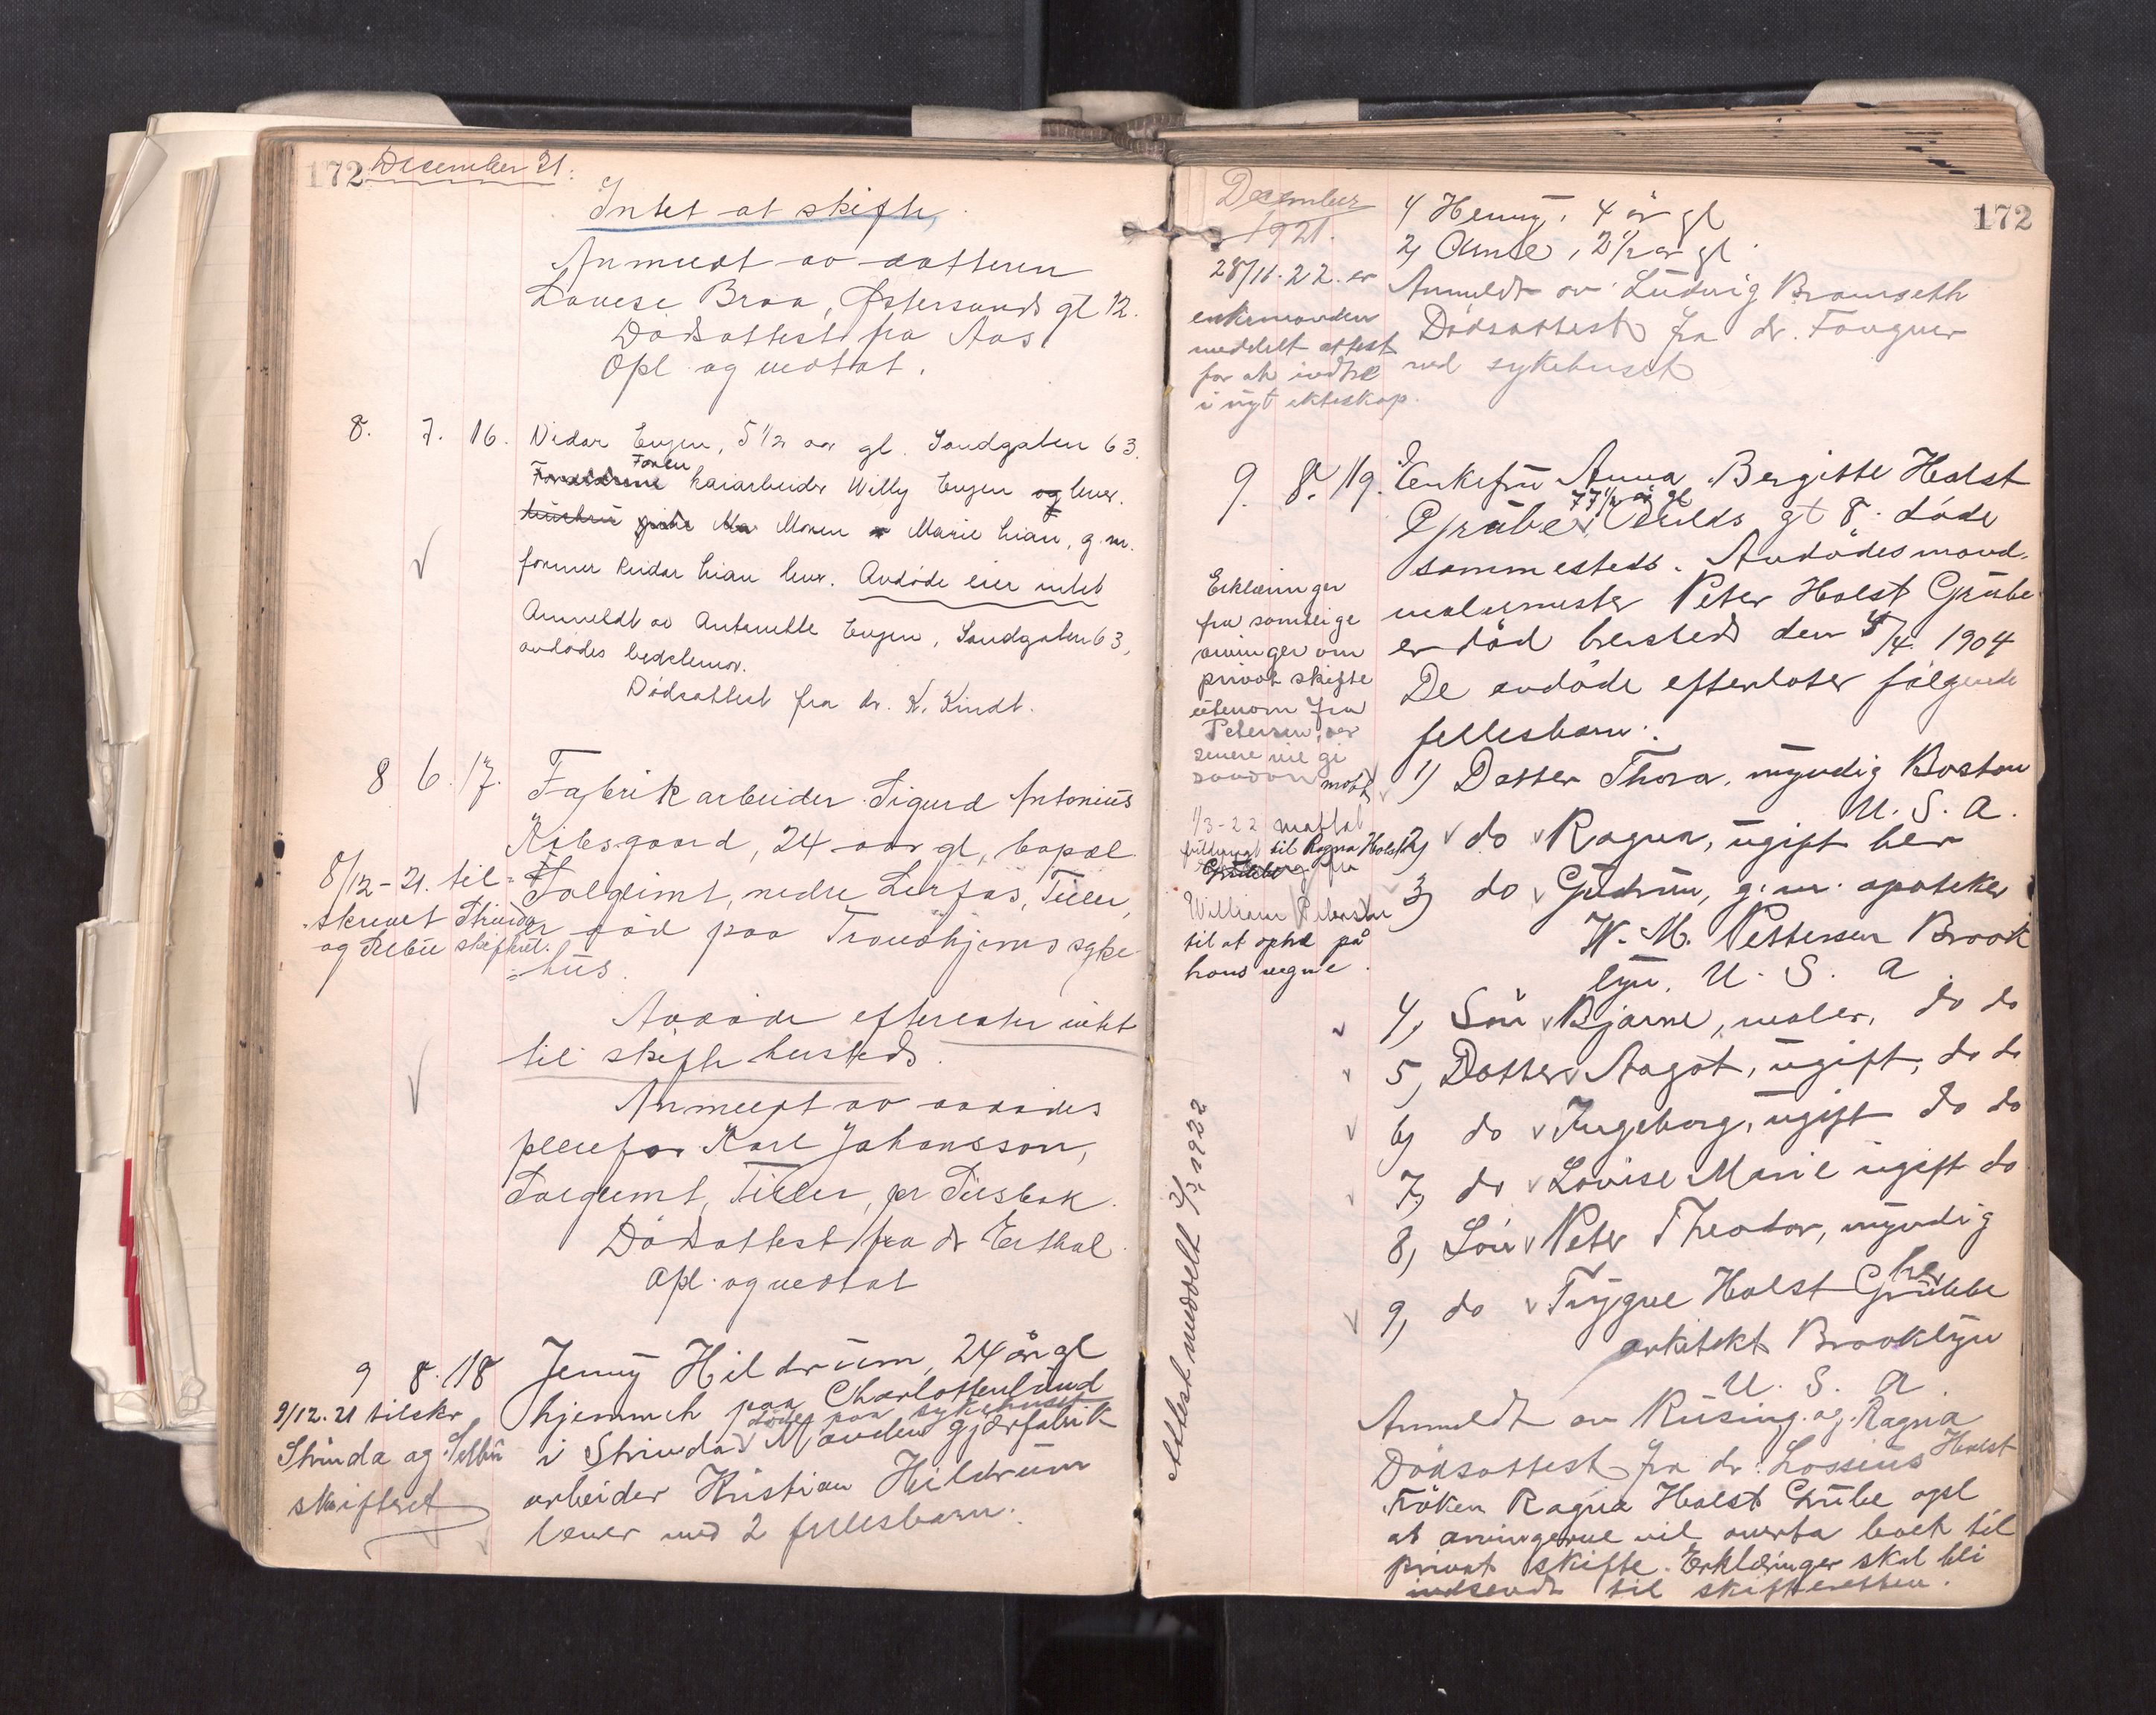 172 December 21.
Intet at skifte,
Anmeldt av datteren
Lovise Braa, Østersunds gt 12.
Dødsattest fra Aas
Opl og vedtat.
8. 7. 16. Vidar Engen, 5 1/2 aar gl. Sandgaten 63.
Faren
kaiarbeider Willy Engen og lever.
Moren Marie Lian, g. m.
former Reidar Lian lever. Avdøde eier intet
Anmeldt av Antonette Engen, Sandgaten 63,
avdødes bedstemor.
Dødsattest fra dr. K. Kindt.
8 6. 17. Fabrikarbeider Sigurd Antonius
Ribsgaard, 24 aar gl, bopæl
8/12-21. til-
Solglimt, nedre Lerfos, Tiller,
skrevet Strinda
er død paa Trondhjems syke-
og Selbu skifteret.
=hus.
Avdøde efterlater intet
til skifte hersteds.
Anmeldt av avdødes
pleiefar Karl Johansson,
Solglimt, Tiller, pr Tilsbak.
Dødsattest fra dr
Opl. og vedtat
9 8. 18 Jenny Hildrum, 24 år gl
hjemmeh paa Charlottenlund
døde paa sykehuset
9/12. 21 tilskr.
i Strinda Manden gjærfabrik
Strinda og Selbu
arbeider Kristian Hildrum
skifteret
lever med 2 fællesbarn:
172
December
1921.
1) Henny, 4 år gl
2) Arne, 2 1/2 år gl.
28/11.22. er
enkemanden
meddelt attest
for at indtre
i nyt ekteskap.
Anmeldt av Ludvig Bromseth
Dødsattest fra dr. Fougner
ved sykehuset
9. 8. 19. Enkefru Anna Bergitte Holst
77 1/2 år gl
Grübe, gt 8. døde
sammesteds. Avdødes mand
malermester Peter Holst Grübe
er død hersteds den 4. 1904
De avdøde efterlater følgende
fellesbarn:
Erklæringer
fra samtlige
arvinger om
privat skifte
utenom fra
Petersen, der
senere vil gi
saadan
mott
1/3-22 mottat
fuldmagt til Ragna Holst
fra
William Petersen
til at optre på
hans vegne.
1) Datter Thora, myndig Boston
U. S. A.
2) do Ragna, ugift her
3) do Gudrun, g. m. apoteker
W. M. Pettersen Brook
lyn. U. S. A.
4) Søn Bjarne, maler, do do
5) Datter Aagot, ugift, do do
6) do Ingeborg, ugift do do
7) do Lovise Marie ugift do
8) Søn Peter Theodor, myndig
her
9) do Trygve Holst Grübbe
arkitekt Brooklyn
U. S. A.
Attest meddelt 2/3 1922
Anmeldt av Rüsing og Ragna
Holst
Dødsattest fra dr. Lossius
Frøken Ragna Holst Grübe opl
at arvingerne vil overta boet til
privat skifte. Erklæringer skal bli
indsendt til skifteretten.